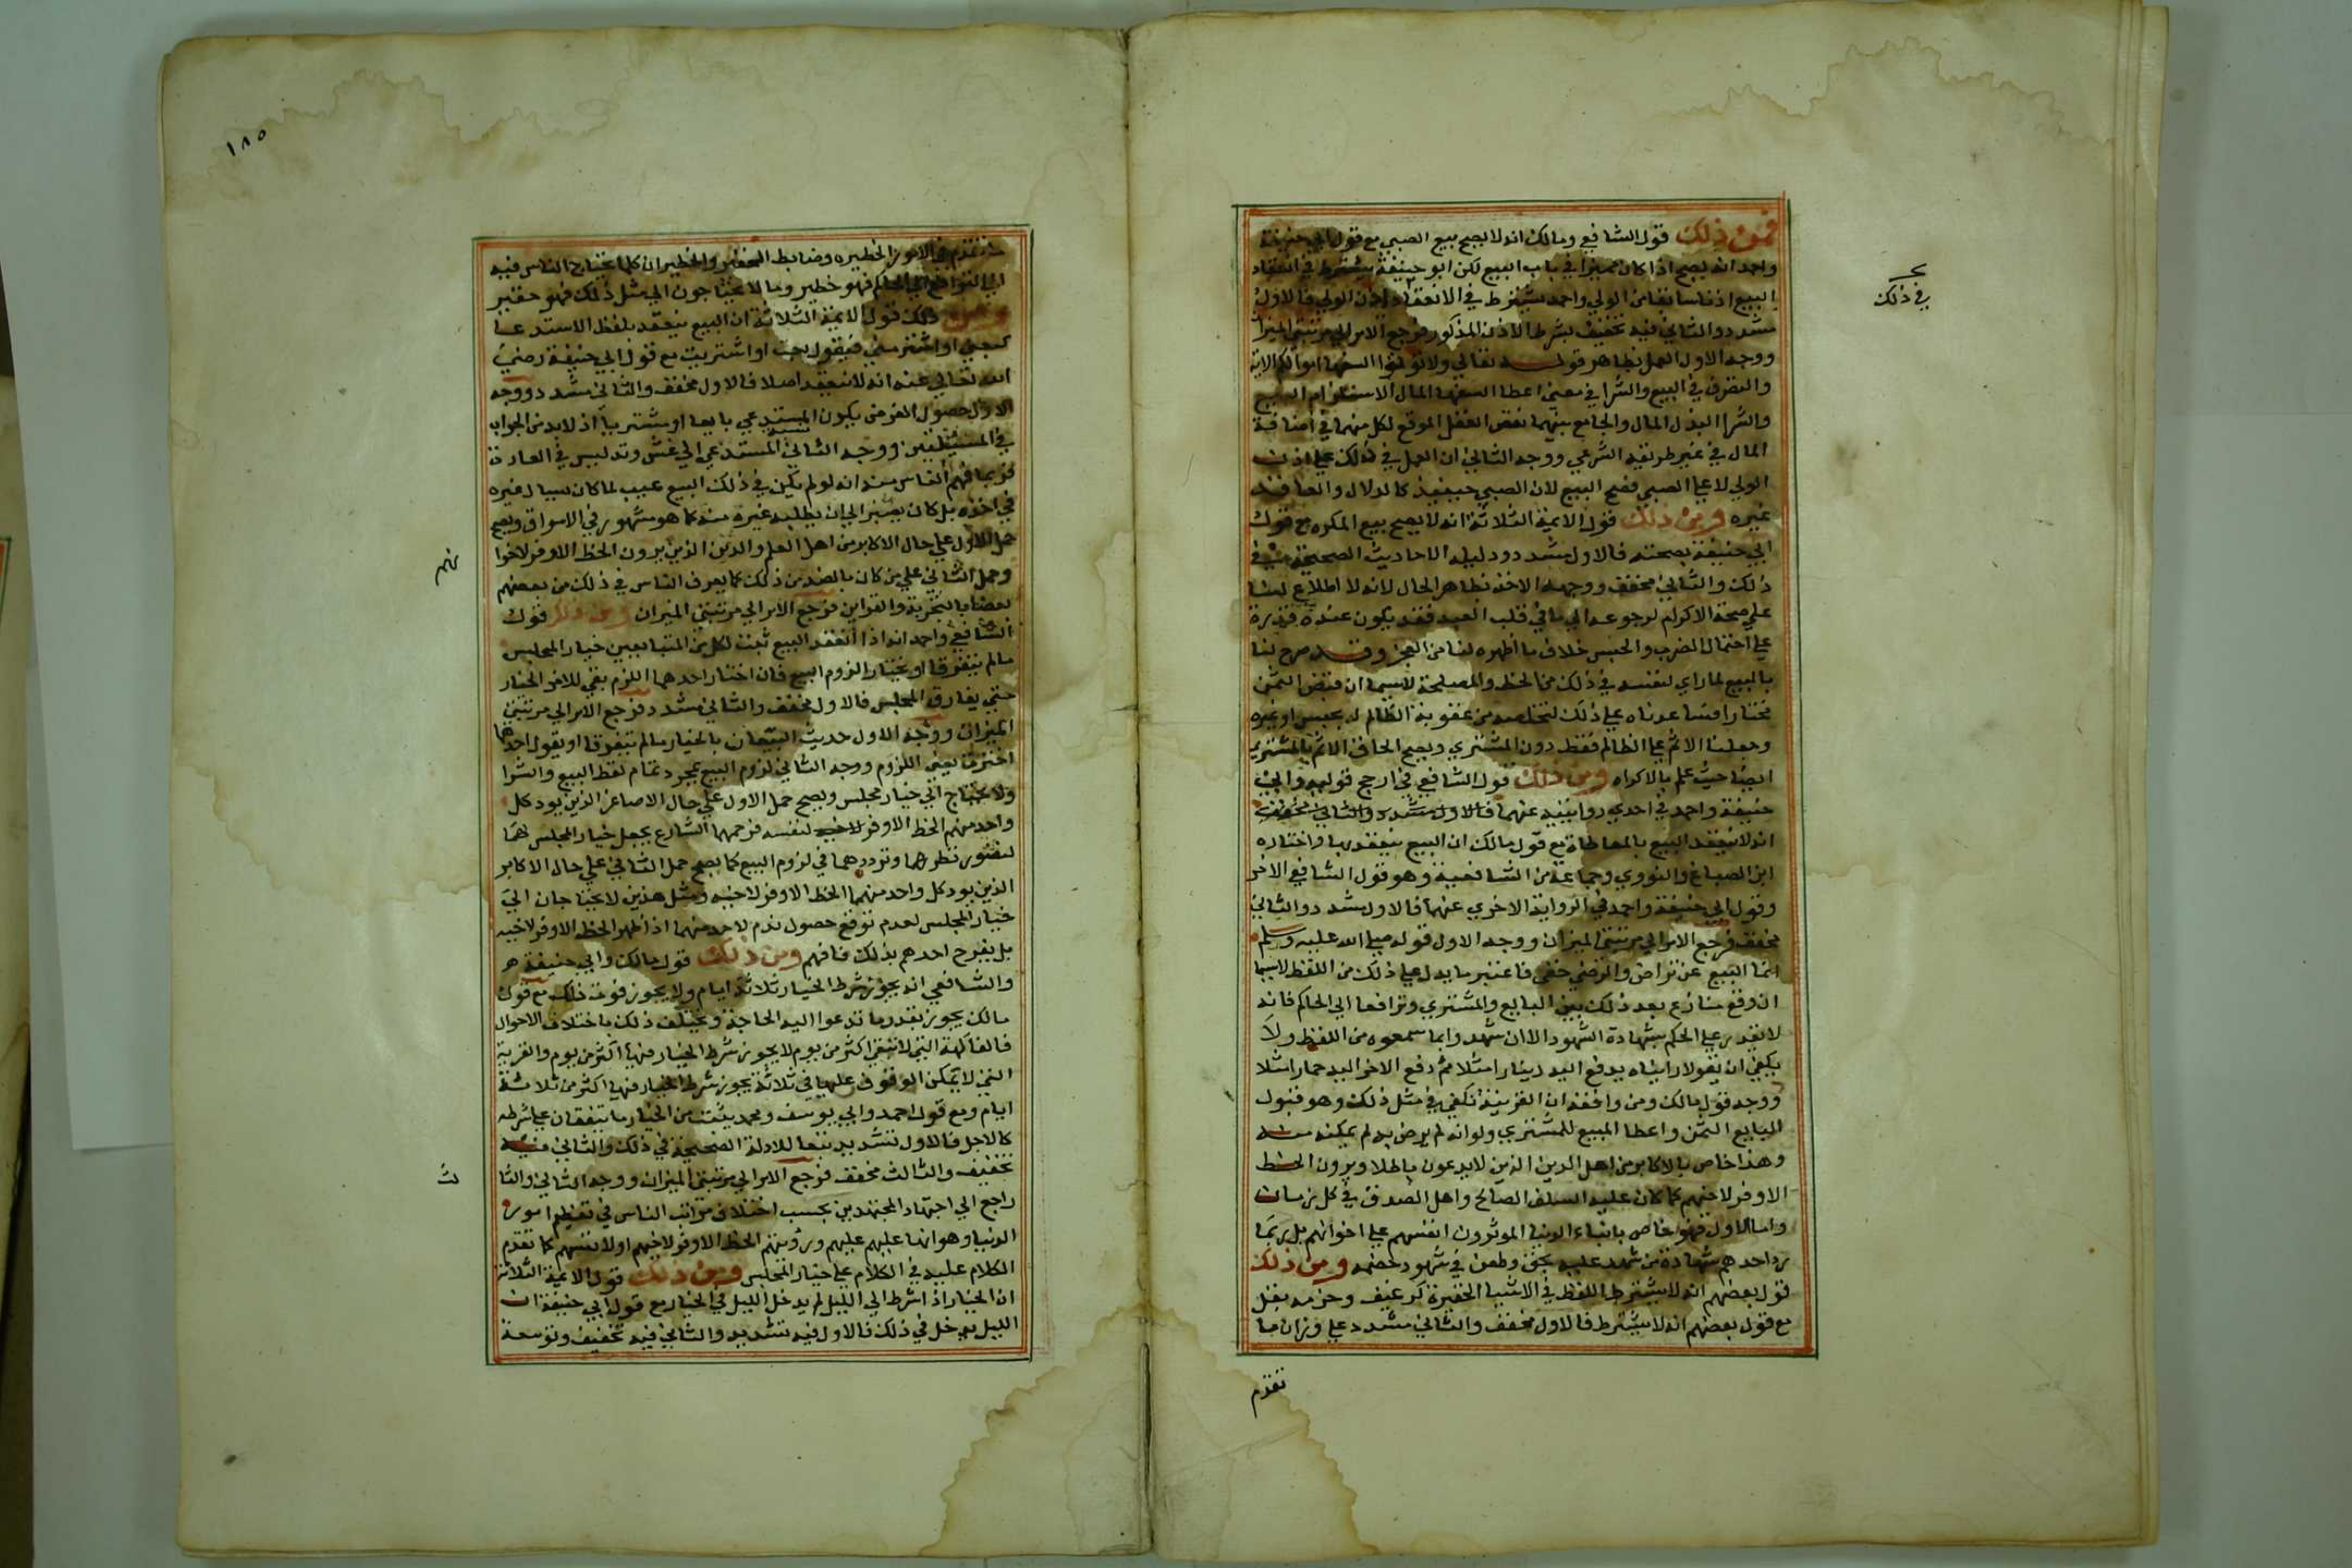 فمن ذلك قول الشافعي ومالك انه لا يصح بيع الصبي مع قول ابي حنيفة
واحمد انه يصح اذا كان مميزا في باب البيع لكن ابو حنيفة يشترط في انعقاد
البيع اذنا سابقا من الولي واحمد يشترط في الانعقاد اذن الولي فالاول
مشدد والثاني فيه تخفيف بشرط الاذن المذكور فرجع الامر الي مرتبتي الميزان
ووجه الاول العمل بظاهر قوله تعالي ولا توتوا السفها اموالكم الاية
والتصرف في البيع والشرا في معني اعطا السفها المال الاستلزام البيع
والشرا البذل المال والجامع بينهما نقص العقل الموقع لكل منهما في اضاقة
المال في غير طريقه الشرعي ووجه الثاني ان العمل في ذلك علي اذن
الولي لا علي الصبي فصح البيع لان الصبي حينئذ كالدلال والعاقد
غيره ومن ذلك قول الايمة الثلاثة انه لا يصح بيع المكره مع قول
ابي حنيفة بصحته فالاول مشدد ودليله الاحاديث الصحيحة في
ذلك والثاني مخفف ووجهه الاخذ بظاهر الحال لانه لا اطلاع لنا
علي صحة الاكرام لرجوعه الي ما في قلب العبد فقد يكون عنده قدرة
علي احتمال الضرب والحبس خلاف ما اظهره لنا من العجز وقد صرح لنا
بالبيع لما راي لنفسه في ذلك من الحظ والمصلحة لاسيما ان قبض الثمن
مختارا فساعدناه علي ذلك لتخلصه من عقوبة الظالم له بحبس او غيره
وجعلنا الاثم علي الظالم فقط دون المشتري ويصح الحاق الاثم بالمشتري
ايضا حيث علم بالاكراه ومن ذلك قول الشافعي في ارجح قوليه وابي
حنيفة واحمد في احدي روايتيه عنهما فالاول مشدد والثاني مخفف
انه لا ينعقد البيع بالمعاطاة مع قول مالك ان البيع ينعقد بها واختاره
ابن الصباغ والنووي وجماعة من الشافعية وهو قول الشافعي الاخر
وقول ابي حنيفة واحمد في الرواية الاخري عنهما فالاول مشدد والثاني
مخفف فرجع الامر الي مرتبتي الميزان ووجه الاول قوله صلي الله عليه وسلم
انما البيع عن تراض والرضي خفي فاعتبر ما يدل علي ذلك من اللفظ لاسيما
ان وقع تنازع بعد ذلك بين البايع والمشتري وترافعا الي الحاكم فانه
لا يقدر علي الحكم بشهادة الشهود الا ان شهدوا بما سمعوه من اللفظ ولا
يكفي ان يقولا رايناه يدفع اليه دينارا مثلا ثم دفع الاخر اليه حمارا مثلا
ووجه قول مالك ومن وافقه ان القرينة تكفي في مثل ذلك وهو قبول
البايع الثمن واعطا المبيع للمشتري ولو انه لم يرض به لم يمكنه منه
وهذا خاص بالاكابر من اهل الدين الذين لا يدعون باطلا ويرون الحظ
الاوفر لاخيهم كما كان عليه السلف الصالح واهل الصدق في كل زمان
واما الاول فهو خاص بابناء الدنيا الموثرون انفسهم علي اخوانهم بل ربما
رد احدهم شهادة من شهد عليه بحق وطعن في شهود خصمه ومن ذلك
قول بعضهم انه لا يشترط اللفظ في الاشيا الحقيرة كرغيف وحزمة بقل
مع قول بعضهم انه لا يشترط فالاول مخفف والثاني مشدد علي وزان ما
تقدم
في ذلك
١٨٥
ما تقدم في الامور الخطيره وضابط الحقير والخطير ان كلما يحتاج الناس فيه
الي الترافع الي الحاكم فهو خطير وما لا يحتاجون الي مثل ذلك فهو حقير
ومن ذلك قول الايمة الثلاثة ان البيع ينعقد بلفظ الاستدعا
كبعني او اشتر مني فيقول بعت او اشتريت مع قول ابي حنيفة رضي
الله تعالي عنه انه لا ينعقد اصلا فالاول مخفف والثاني مشدد ووجه
الاول حصول الغرض بكون المستدعي بايعا او مشتريا اذ لا بد من الجواب
في المسئلتين ووجه الثاني المستدعي الي غش وتدليس في العادة
فربما فهم الناس منه انه لو لم يكن في ذلك البيع عيب لما كان سيال غيره
في اخذه بل كان يصبر الي ان يطلبه غيره منه كما هو مشهور في الاسواق ويصح
حمل الاول علي حال الاكابر من اهل العلم والدين الذين يرون الحظ الاوفر لاخوا
نهم
وحمل الثاني علي من كان بالضد من ذلك كما يعرف الناس في ذلك من بعضهم
بعضا بالتجربة والقراين فرجع الامر الي مرتبتي الميزان ومن ذلك قول
الشافعي واحمد انه اذا انعقد البيع ثبت لكل من المتبايعين خيار المجلس
ما لم يتفرقا او يختار الزوم البيع فان اختار احدهما اللزم بقي للاخر الخيار
حتي يفارق المجلس فالاول مخفف والثاني مشدد فرجع الامر الي مرتبتي
الميزان ووجه الاول حديث البيعان بالخيار ما لم يتفرقا او يقول احدهما
اختر تا يعني اللزوم ووجه الثاني لزوم البيع بمجرد تمام لفظ البيع والشرا
ولا يحتاج الي خيار مجلس ويصح حمل الاول علي حال الاصاغر الذين يود كل
واحد منهم الحظ الاوفر لنفسه فرحمهما الشارع بجعل خيار المجلس لهما
لفتور نظرهما وترددهما في لزوم البيع كما يصح حمل الثاني علي حال الاكابر
الذين يود كل واحد منهما الحظ الاوفر لاخيه ومثل هذين لا يحتاجان الي
خيار المجلس لعدم توقع حصول ندم لاحد منهما اذا ظهر الحظ الاوفر لاخيه
بل يفرح احدهم بذلك فافهم ومن ذلك قول مالك وابي حنيفة
والشافعي انه يجوز شرط الخيار ثلاثة ايام ولا يجوز فوق ذلك مع قول
مالك يجوز بقدر ما تدعوا اليه الحاجة ويختلف ذلك باختلاف الاحوال
فالفاكهة التي لا تبقي اكثر من يوم لا يجوز شرط الخيار فيها اكثر من يوم والقرية
التي لا يمكن الوقوف عليها في ثلاثة يجوز شرط الخيار فيها اكثر من ثلاثة
ايام ومع قول احمد وابي يوسف ومحمد يثبت من الخيار ما يتفقان علي شرطه
كالاجل فالاول تشديد تبعا للادلة الصحيحة في ذلك والثاني فيه
تخفيف والثالث مخفف فرجع الامر الي مرتبتي الميزان ووجه الثاني والثا
لث
راجع الي اجتهاد المجتهدين بحسب اختلاف مراتب الناس في تعظيم امور
الدنيا وهوانها عليهم عليهم ورؤيتهم الحظ الاوفر لاخيهم او لانفسهم كما تقدم
الكلام عليه في الكلام علي خيار المجلس ومن ذلك قول الايمة الثلاثة
ان الخيار اذا شرط الي الليل لم يدخل الليل في الخيار مع قول ابي حنيفة ان
الليل يدخل في ذلك فالاول فيه تشديد والثاني فيه تخفيف وتوسعة